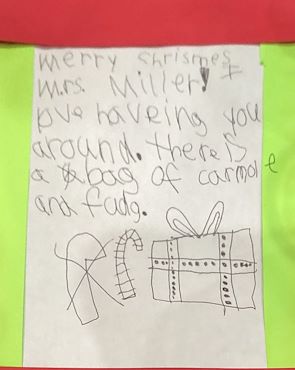 merry chrismes
mrs. Miller! I
love haveing you
around. there is
a bag of carmole
and fudg.